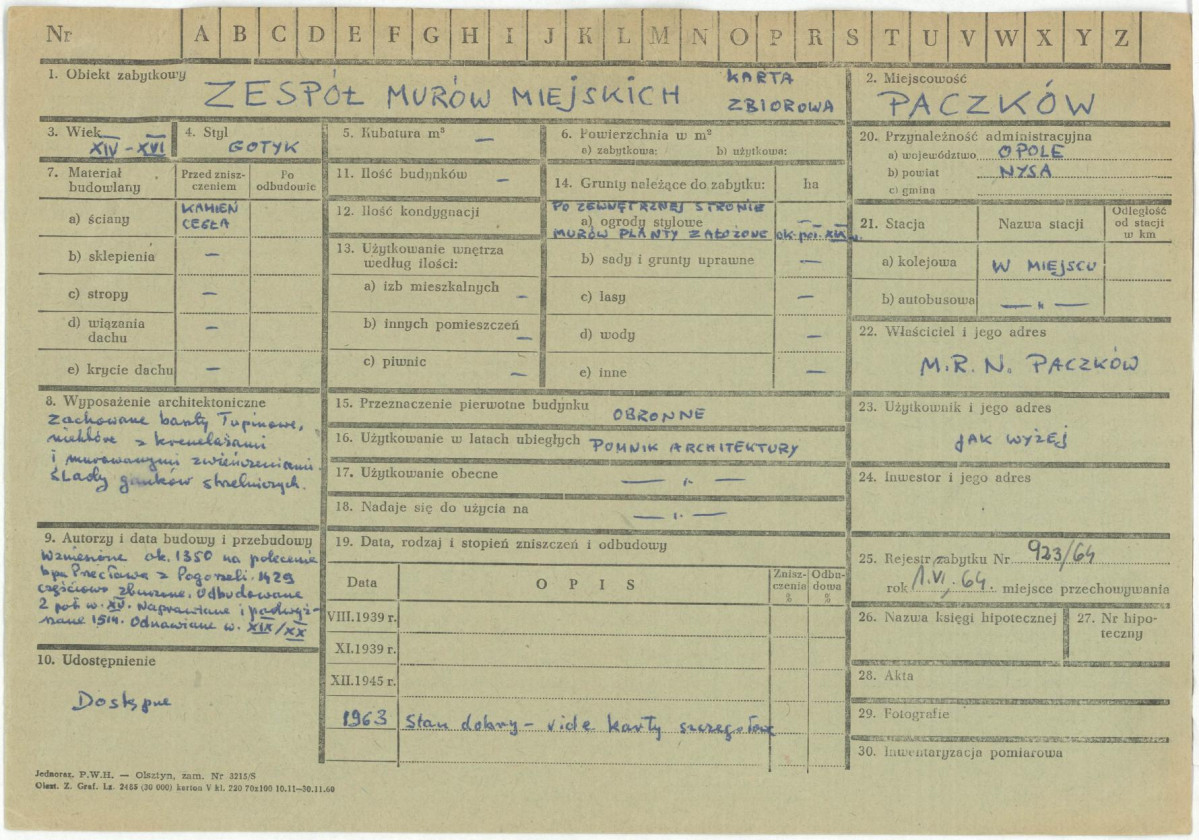 Nr A B C D E F G H I J K L M N O P R S T U V W X Y Z
1. Obiekt zabytkowy
ZESPÓŁ MURÓW MIEJSKICH
KARTA
ZBIOROWA
2. Miejscowość
PACZKÓW
3. Wiek
XIV - XVI
4. Styl
GOTYK
5. Kubatura m³ —
6. Powierzchnia w m²
a) zabytkowa: b) użytkowa:
7. Materiał budowlany
Przed znisz-
czeniem
Po
odbudowie
a) ściany
KAMIEŃ
CEGŁA
b) sklepienia —
c) stropy —
d) wiązania
dachu —
e) krycie dachu —
8. Wyposażenie architektoniczne
Zachowane baszty łupinowe,
niektóre z krenelażami
i murowanymi zwieńczeniami.
Ślady ganków strzelniczych.
9. Autorzy i data budowy i przebudowy
Wzniesione ok. 1350 na polecenie
bpa Przecława z Pogorzeli. 1429
częściowo zburzone. Odbudowane
2 poł. w. XV. Naprawiane i podwyż-
szane 1514. Odnawiane w. XIX/XX
10. Udostępnienie
Dostępne
11. Ilość budynków —
12. Ilość kondygnacji
13. Użytkowanie wnętrza
według ilości:
a) izb mieszkalnych —
b) innych pomieszczeń —
c) piwnic —
14. Grunty należące do zabytku: ha
PO ZEWNĘTRZNEJ STRONIE
a) ogrody stylowe —
MURÓW PLANTY ZAŁOŻONE ok. poł. XIX w.
b) sady i grunty uprawne —
c) lasy —
d) wody —
e) inne —
15. Przeznaczenie pierwotne budynku OBRONNE
16. Użytkowanie w latach ubiegłych POMNIK ARCHITEKTURY
17. Użytkowanie obecne — „ —
18. Nadaje się do użycia na — „ —
19. Data, rodzaj i stopień zniszczeń i odbudowy
Data OPIS
Znisz-
czenia
%
Odbu-
dowa
%
VIII.1939 r.
XI.1939 r.
XII.1945 r.
1963 Stan dobry - vide karty szczegółowe
20. Przynależność administracyjna
a) województwo OPOLE
b) powiat NYSA
c) gmina
21. Stacja Nazwa stacji
Odległość
od stacji
w km
a) kolejowa W MIEJSCU
b) autobusowa — „ —
22. Właściciel i jego adres
M.R.N. PACZKÓW
23. Użytkownik i jego adres
JAK WYŻEJ
24. Inwestor i jego adres
25. Rejestr zabytku Nr 923/64
rok 1.VI.64. miejsce przechowywania
26. Nazwa księgi hipotecznej
27. Nr hipo-
teczny
28. Akta
29. Fotografie
30. Inwentaryzacja pomiarowa
Jednoraz. P.W.H. — Olsztyn, zam. Nr 3215/S
Olszt. Z. Graf. Lz. 2485 (30 000) karton V kl. 220 70x100 10.11—30.11.60